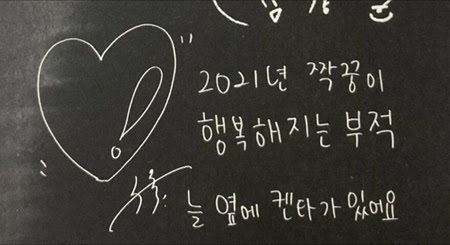 2021년 짝꿍이
행복해지는 부적
늘 옆에 켄타가 있어요